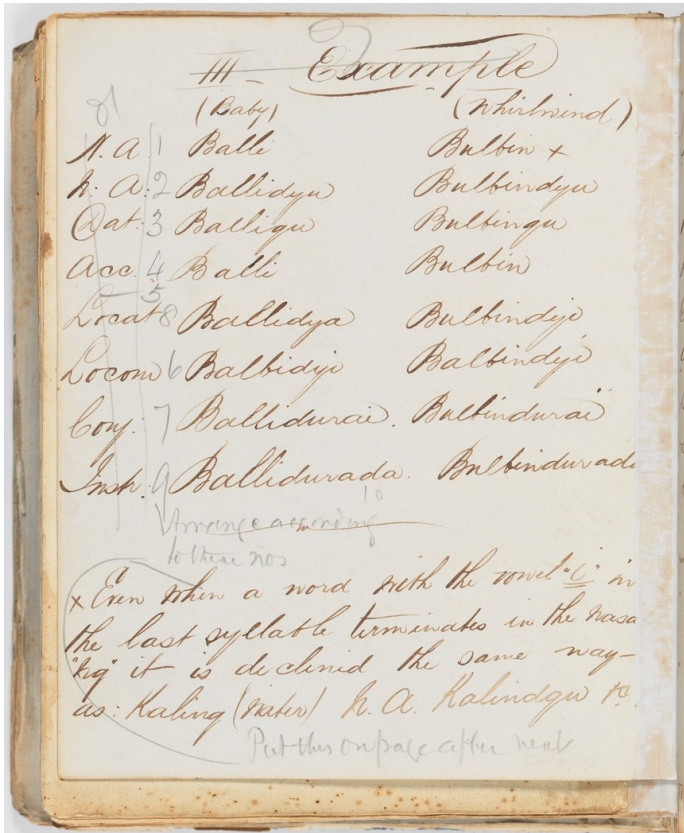 III - Example
(Baby) (Whirlwind)
N. A 1 Balli Bulbin ×
N. A: 2 Ballidyu Bulbindyu
Dat: 3 Balligu Bulbingu
Acc. 4 Balli Bulbin
5
Locat 8 Ballidya Bulbindye
Locom 6 Balbidyi Balbindyi
Conj: 7 Ballidurai. Bulbinduraï
Instr. 9 Ballidurada. Bulbindurada
Arrange according
to these nos
× Even when a word with the vowel "i" in
the last syllable terminates in the nasa
"ng" it is declined the same way—
as: Kaling (water) N. A. Kalindyu
Put this on page after next